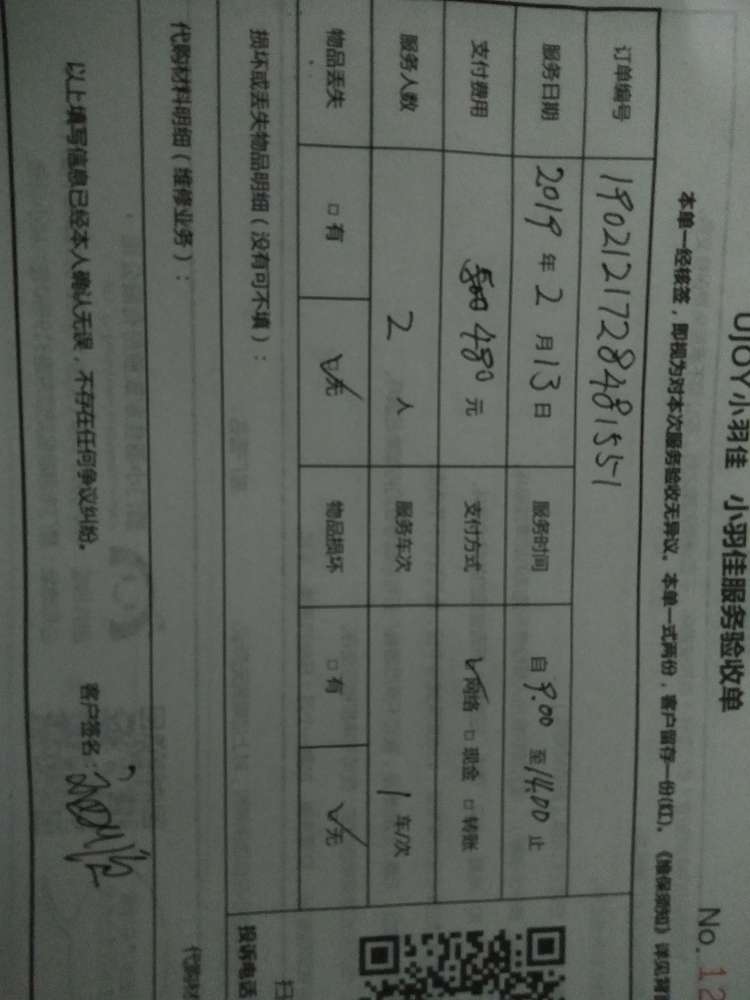 UJOY小羽佳 小羽佳服务验收单
No. 12
本单一经核签，即视为对本次服务验收无异议。本单一式两份，客户留存一份(红)。《维保须知》详见背
订单编号 1902121728481551
服务日期 2019 年 2 月 13 日 服务时间 自 9.00 至 14.00 止
支付费用 480 元 支付方式 ☑网络 □ 现金 □ 转账
服务人数 2 人 服务车次 1 车/次
物品丢失 □ 有 ☑无 物品损坏 □ 有 ☑无
损坏或丢失物品明细（没有可不填）：
扫
投诉电话
代购材料明细（维修业务）：
代购材
以上填写信息已经本人确认无误，不存在任何争议纠纷。 客户签名：